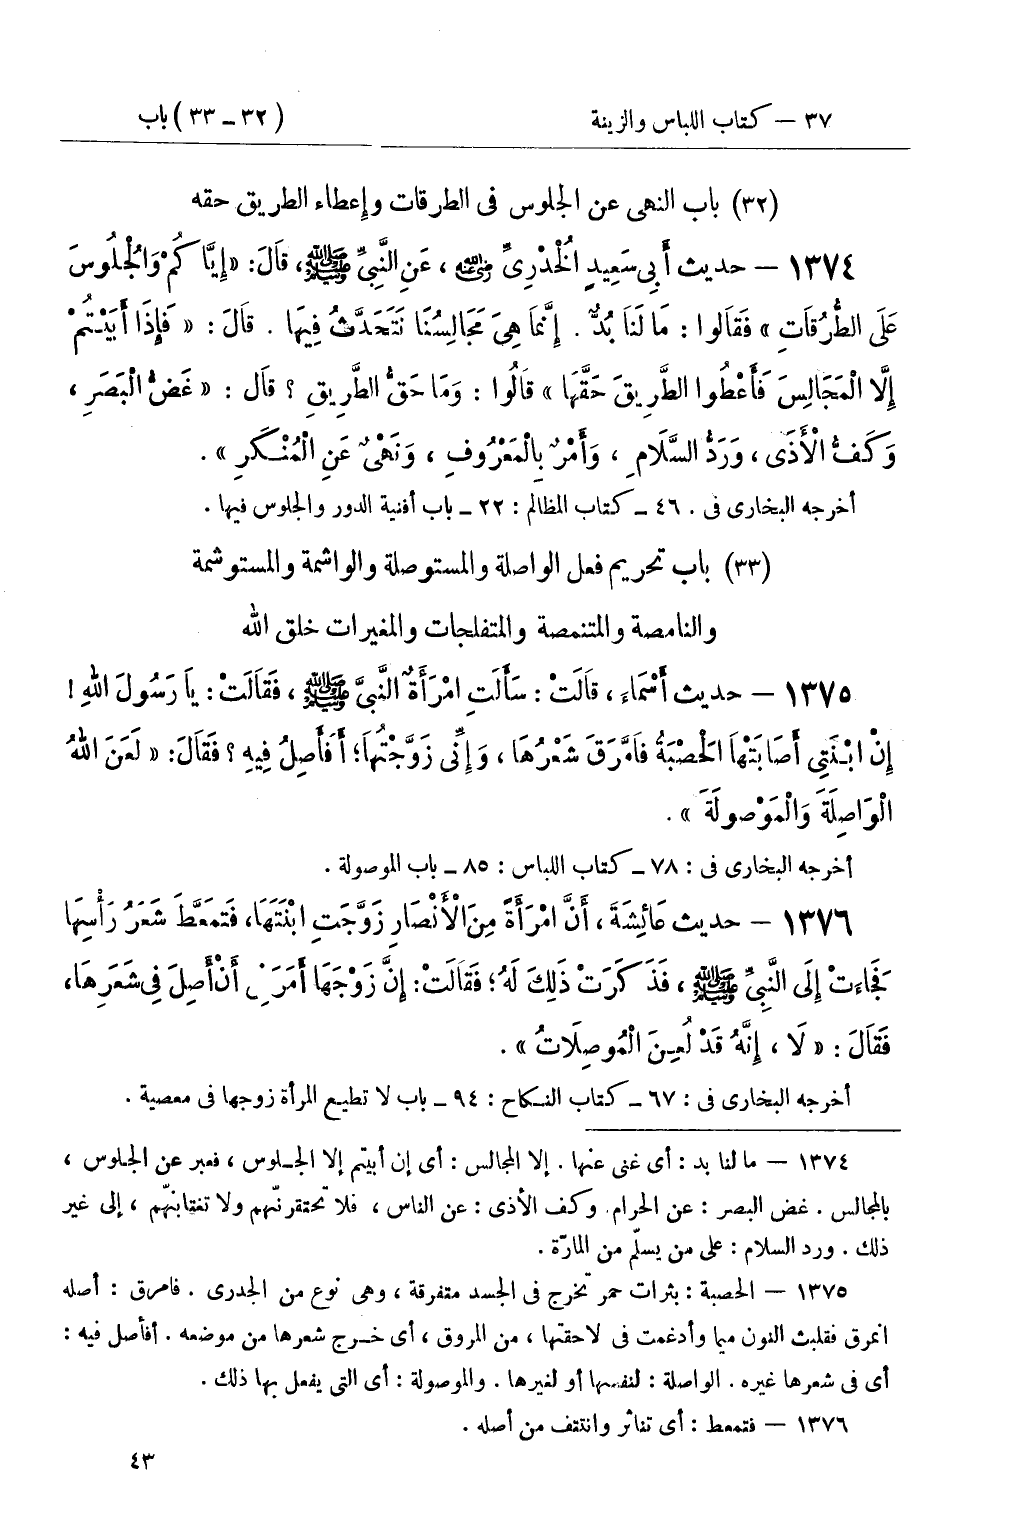 ٣٧ – كتاب اللباس والزينة (٣٢ – ٣٣) باب
(٣٢) باب النهى عن الجلوس فى الطرقات وإعطاء الطريق حقه
١٣٧٤ – حديث أَبِى سَعِيدٍ الْخُدْرِىِّ رضي الله عنه ، عَنِ النَّبِىِّ ﷺ، قَالَ: « إِيَّا كُمْ وَالْجُلُوسَ
عَلَى الطُّرُقَاتِ » فَقَالوا : مَا لَنَا بُدٌّ . إِنَّمَا هِىَ مَجَالِسُنَا نَتَحَدَّثُ فِيهَا . قَالَ : « فَإِذَا أَبَيْتُمْ
إِلَّا الْمَجَالِسَ فَأَعْطُوا الطَّرِيقَ حَقَّهَا » قَالُوا : وَمَا حَقُّ الطَّرِيقِ ؟ قَالَ : « غَضُّ الْبَصَرِ ،
وَكَفُّ الْأَذَى ، وَرَدُّ السَّلَامِ ، وَأَمْرٌ بِالْمَعْرُوفِ ، وَنَهْىٌ عَنِ الْمُنْكَرِ » .
أخرجه البخارى فى . ٤٦ – كتاب المظالم : ٢٢ – باب أفنية الدور والجلوس فيها .
(٣٣) باب تحريم فعل الواصلة والمستوصلة والواشمة والمستوشمة
والنامصة والمتنمصة والمتفلجات والمغيرات خلق الله
١٣٧٥ – حديث أَسْمَاءَ ، قَالَتْ : سَأَلَتِ امْرَأَةٌ النَّبِىَّ ﷺ ، فَقَالَتْ : يَا رَسُولَ اللهِ !
إِنَّ ابْنَتِى أَصَابَتْهَا الْحَصْبَةُ فَامَّرَقَ شَعْرُهَا ، وَإِنِّى زَوَّجْتُهَا؛ أَفَأَصِلُ فِيهِ ؟ فَقَالَ: « لَعَنَ اللهُ
الْوَاصِلَةَ وَالْمَوْصولَةَ » .
أخرجه البخارى فى : ٧٨ – كتاب اللباس : ٨٥ – باب الموصولة .
١٣٧٦ – حديث عَائِشَةَ ، أَنَّ امْرَأَةً مِنَ الْأَنْصَارِ زَوَّجَتِ ابْنَتَهَا، فَتَمَعَّطَ شَعَرُ رَأْسِهَا
فَجَاءَتْ إِلَى النَّبِىِّ ﷺ ، فَذَ كَرَتْ ذلِكَ لَهُ؛ فَقَالَتْ: إِنَّ زَوْجَهَا أَمَرَنِى أَنْ أَصِلَ فِى شَعَرِهَا،
فَقَالَ : « لَا ، إِنَّهُ قَدْ لُعِنَ الْمُوصِلَاتُ » .
أخرجه البخارى فى : ٦٧ – كتاب النكاح : ٩٤ – باب لا تطيع المرأة زوجها فى معصية .
١٣٧٤ – ما لنا بد : أى غنى عنها . إلا المجالس : أى إن أبيتم إلا الجلوس ، فعبر عن الجلوس ،
بالمجالس . غض البصر : عن الحرام. وكف الأذى : عن الناس ، فلا تحتقرنّهم ولا تغتابنّهم ، إلى غير
ذلك . ورد السلام : على من يسلّم من المارّة .
١٣٧٥ – الحصبة : بثرات حمر تخرج فى الجسد متفرقة ، وهى نوع من الجدرى . فامرق : أصله
انمرق فقلبت النون ميما وأدغمت فى لاحقتها ، من المروق ، أى خرج شعرها من موضعه . أفأصل فيه :
أى فى شعرها غيره . الواصلة : لنفسها أو لغيرها . والموصولة : أى التى يفعل بها ذلك .
١٣٧٦ – فتمعط : أى تناثر وانتتف من أصله .
٤٣